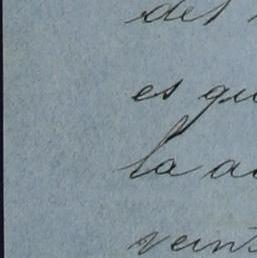 del
es qu
la a
veint